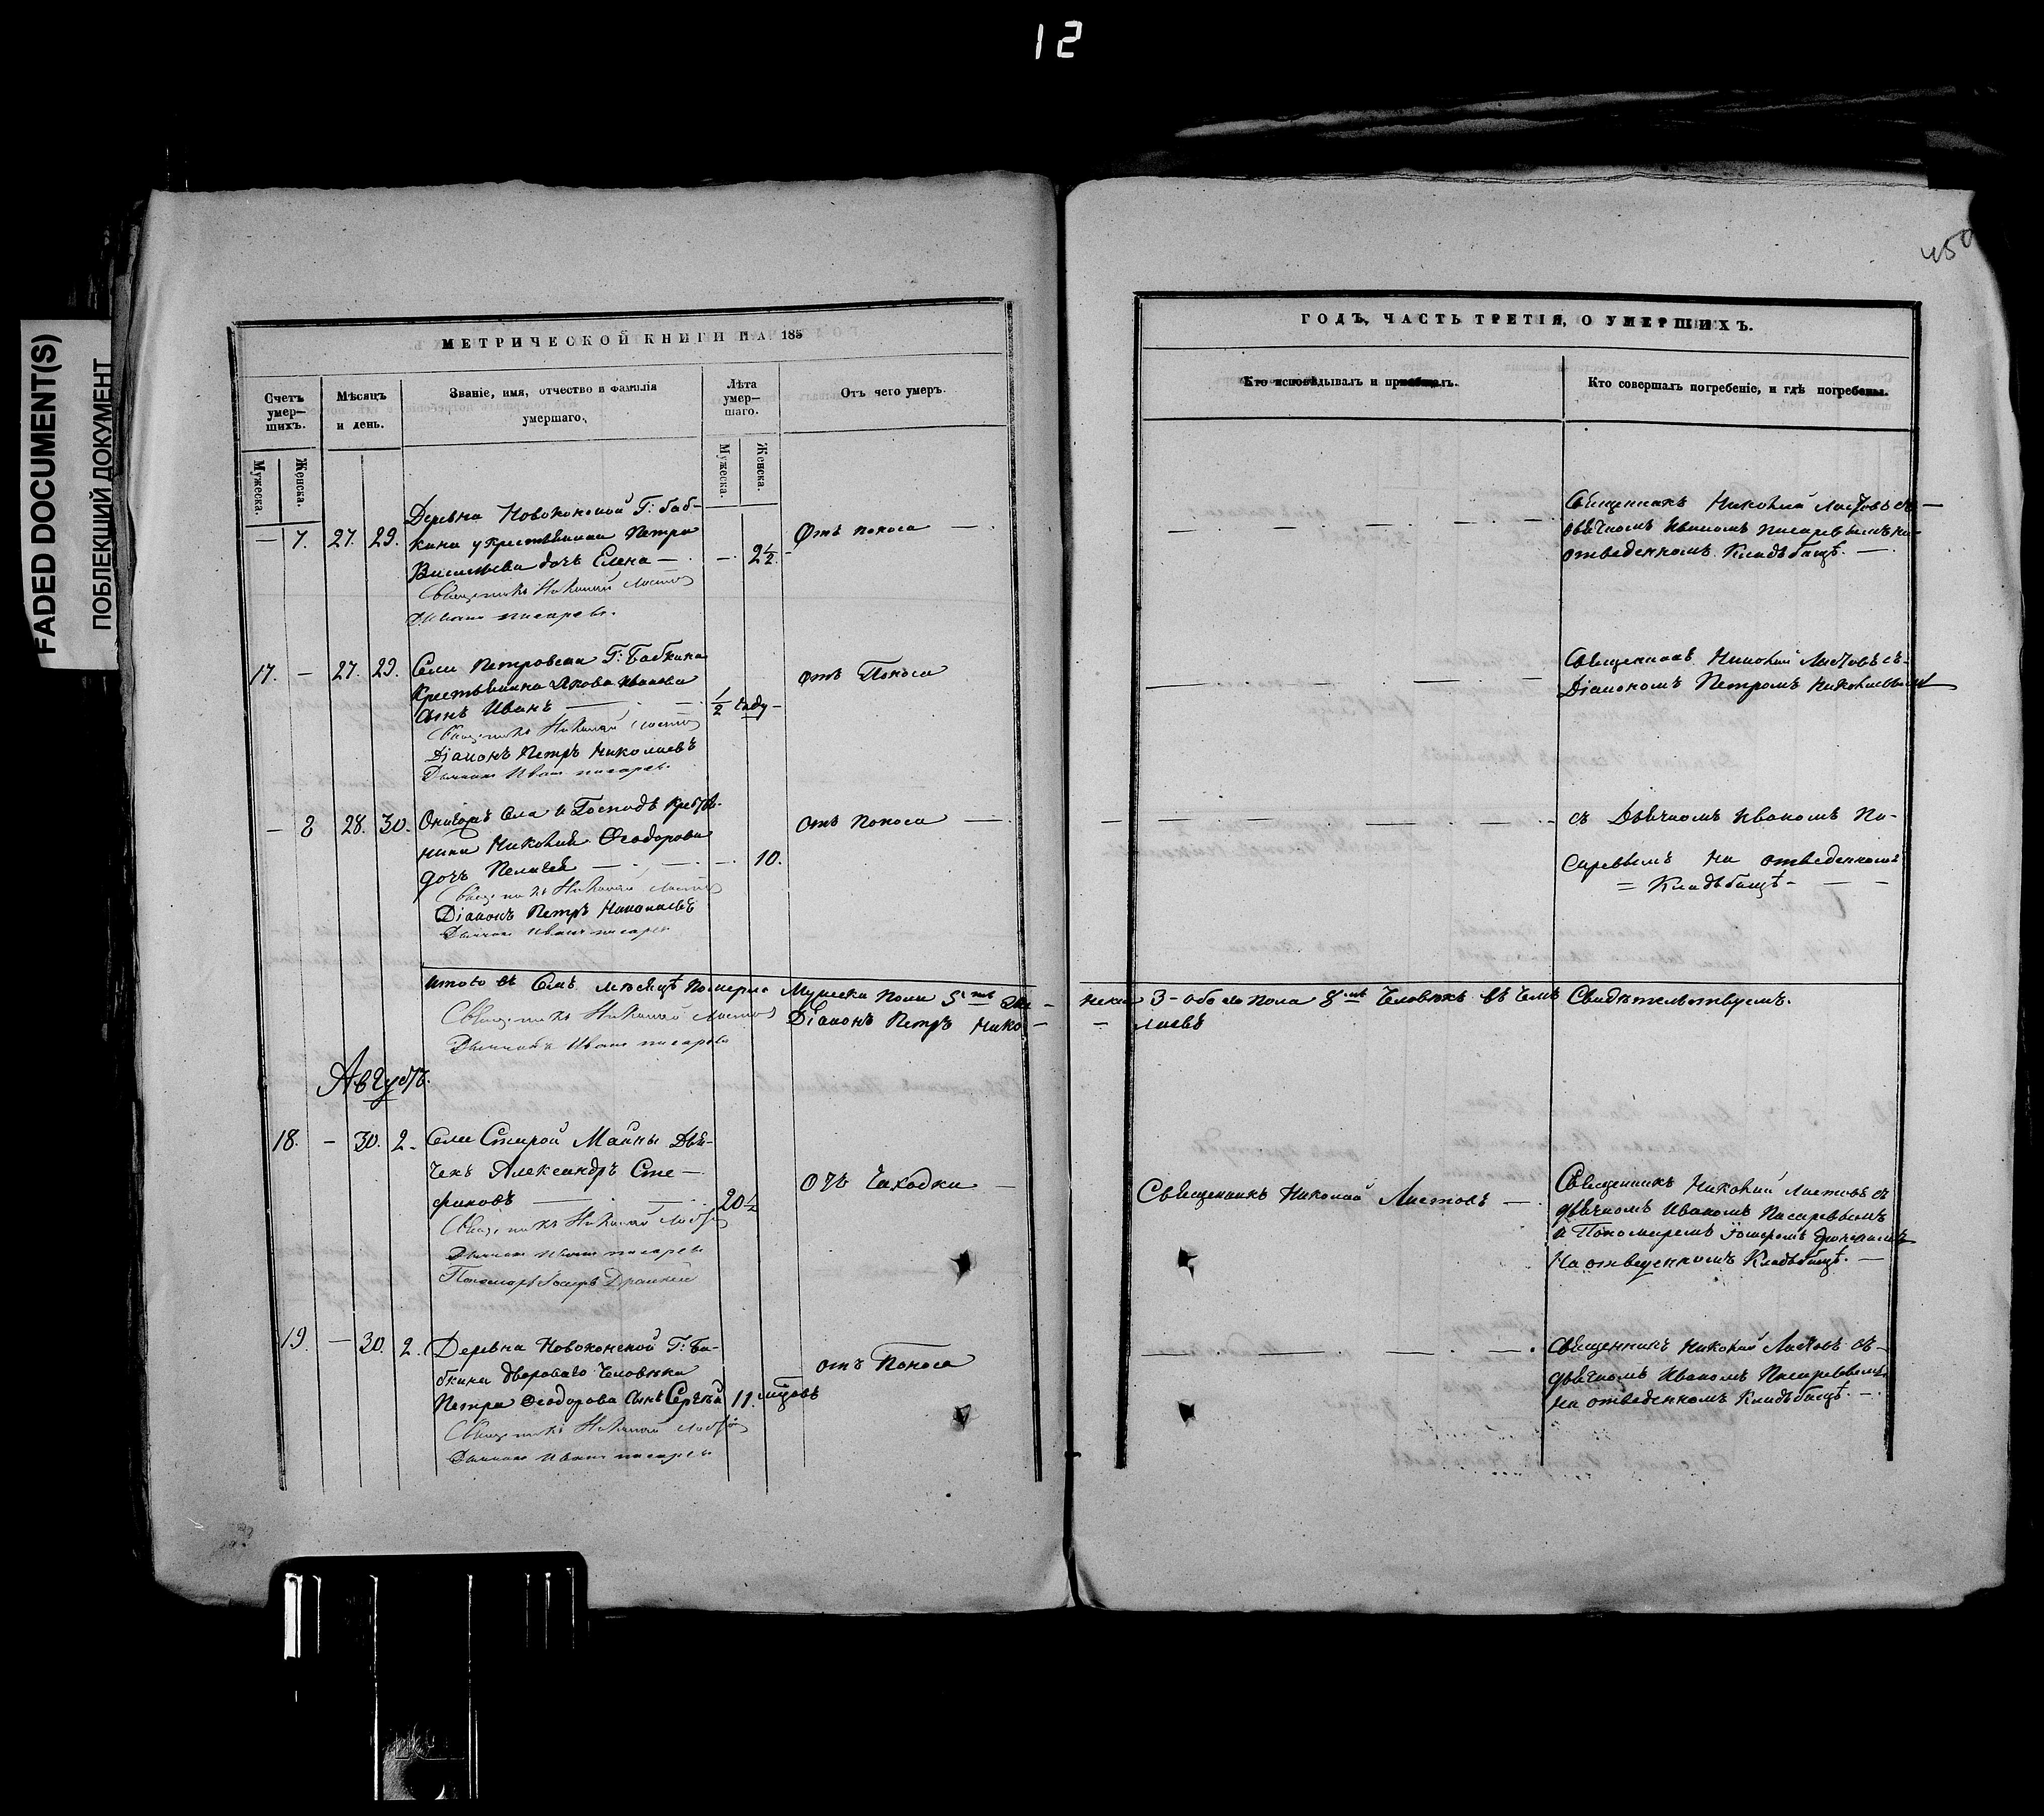 12
FADED DOCUMENT(S)
ПОБЛЕКШИЙ ДОКУМЕНТ
МЕТРИЧЕСКОЙ КНИГИ НА 185
Счетъ умер— шихъ.
Мѣсяцъ и день.
Званіе, имя, отчество и фамилія умершаго.
Лѣта умер— шаго.
Отъ чего умеръ.
Мужеска.
Женска.
Мужеска.
Женска.
— 7. 27. 29.
Деревна Новоконской Г: Баб-
кина у крестьянина Петра
Васильева дочь Елена —
— 2½.
Отъ поноса —
Священникъ Николай Листов
Д. Иванъ писаревъ.
17. — 27. 29.
Села Петровска Г: Бабкина
Крестьянина Якова Иванова
Сынъ Иванъ —
½ году —
отъ Поноса
Священникъ Николай Листов
Діаконъ Петръ Николаевъ
Дьячокъ Иванъ писаревъ
— 8 28. 30.
Онагожъ Села и Господъ крестья-
нина Николай Ѳеодорова
дочь Пелагея —
— 10.
отъ Поноса —
Священникъ Николай Листов
Діаконъ Петръ Николаевъ
Дьячокъ Иванъ писаревъ
итого въ Семъ мѣсяцѣ померло Мужеска пола 5ть Же-
Священникъ Николай Листов Діаконъ Петръ Нико-
Дьячокъ Иванъ писаревъ
Августъ.
18. — 30. 2.
Села Старой Майны Дья-
чекъ Александръ Сте-
фановъ —
20½
отъ Чаходки —
Священникъ Николай Листов
Дьячокъ Иванъ писаревъ
Пономарь Іосифъ
19. — 30. 2.
Деревна Новоконской Г: Ба-
бкина двороваго человѣка
Петра Ѳеодорова сынъ Сергѣй
11. мѣсяцовъ
отъ Поноса
Священникъ Николай Листов
Дьячокъ Иванъ писаревъ
450
ГОДЪ, ЧАСТЬ ТРЕТІЯ, О УМЕРШИХЪ.
Кто исповѣдывалъ и пріобщалъ.
Кто совершалъ погребеніе, и гдѣ погребены.
Священникъ Николай Листовъ съ —
дьячкомъ Иваномъ Писаревымъ на
отведенномъ Кладбищѣ. —
Священникъ Николай Листовъ съ
Діакономъ Петромъ Николаевымъ
съ Дьячкомъ Иваномъ Пи-
саревымъ на отведенномъ
= Кладбищѣ —
нска 3 — обоего пола 8мь Человѣкъ въ чемъ Свидѣтельствуемъ.
— лаевъ
Священникъ Николай Листовъ —
Священникъ Николай Листовъ съ
дьячкомъ Иваномъ Писаревымъ
и Пономаремъ Іосифомъ
На отведенномъ Кладбищѣ. —
Священникъ Николай Листовъ съ
дьячкомъ Иваномъ Писаревымъ
на отведенномъ Кладбищѣ. —